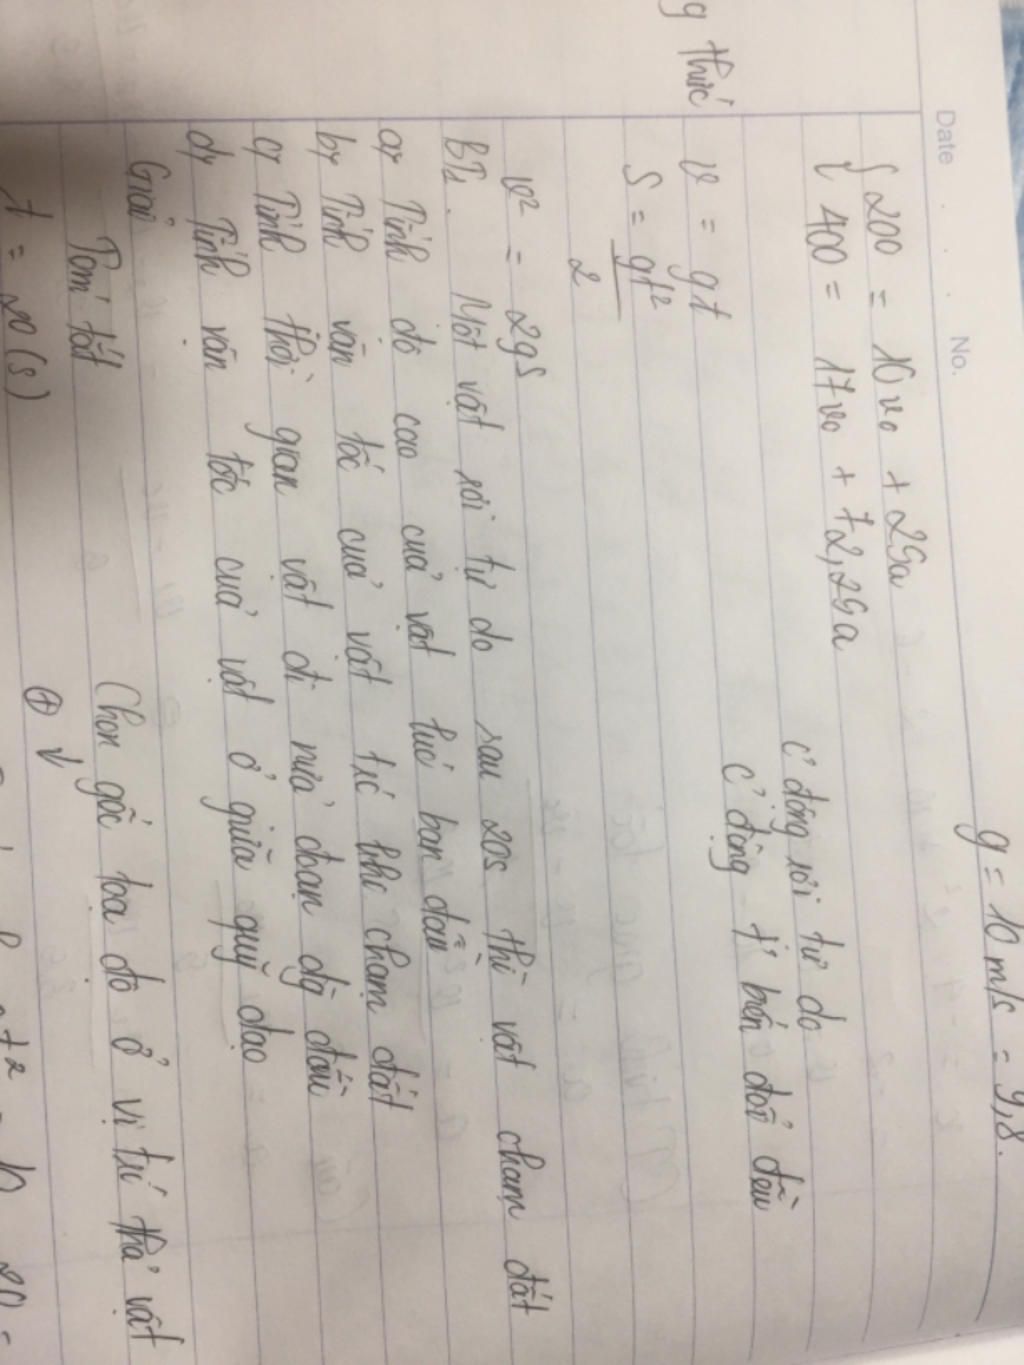 Date No.
g = 10 m/s = 9,8.
{ 200 = 10v₀ + 25a
{ 400 = 17v₀ + 72,25a
c' động rơi tự do
c' động t' biến đổi đều
g thức v = gt
S = gt²/2
v² = 2gS
BT₁. Một vật rơi tự do sau 20s thì vật chạm đất
a, Tính độ cao của vật lúc ban đầu
b, Tính vận tốc của vật trc khi chạm đất
c, Tính thời gian vật đi nửa đoạn đg đầu
d, Tính vận tốc của vật ở giữa quỹ đạo
Giải
Tóm tắt Chọn gốc toạ độ ở vị trí thả vật
t = 20 (s) ⊕ ↓